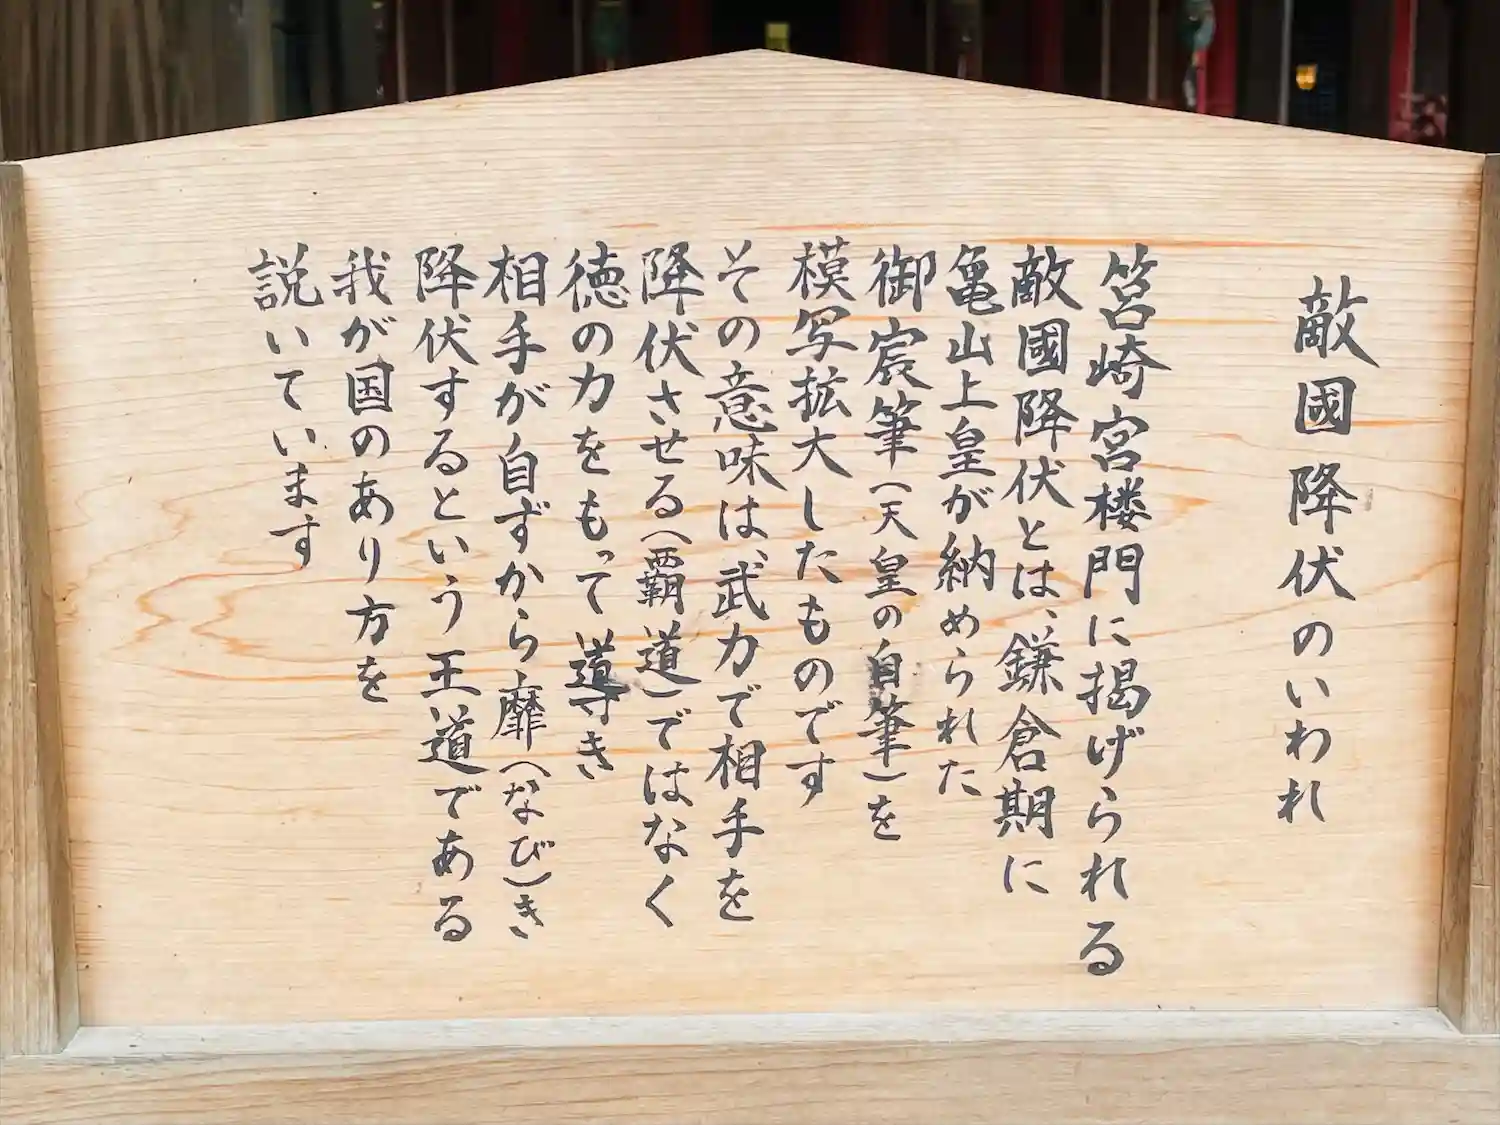 敵國降伏のいわれ
筥崎宮楼門に掲げられる
敵國降伏とは、鎌倉期に
亀山上皇が納められた
御宸筆（天皇の自筆）を
模写拡大したものです
その意味は、武力で相手を
降伏させる（覇道）ではなく
徳の力をもって導き
相手が自ずから靡（なび）き
降伏するという王道である
我が国のあり方を
説いています